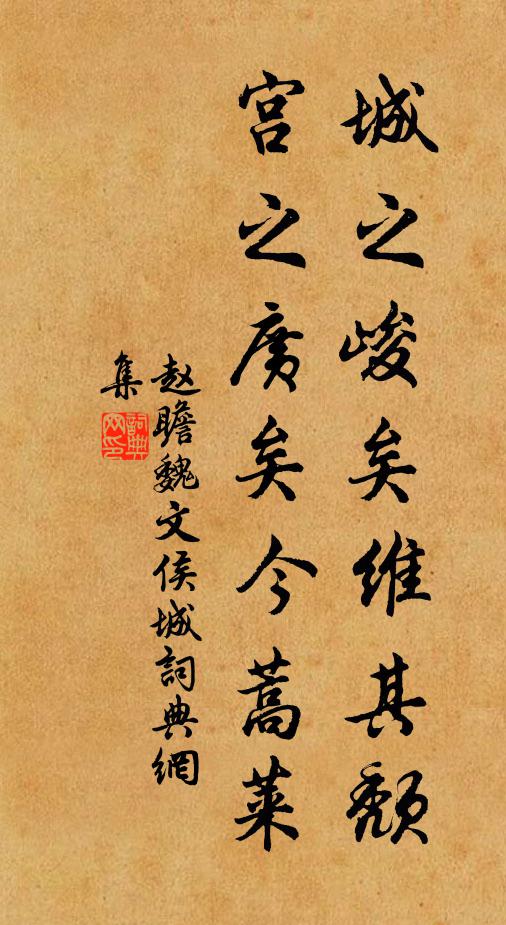 城之峻矣维其颓
宫之廣矣今蒿莱
赵瞻魏文侯城詞典網
集
詞典
网印